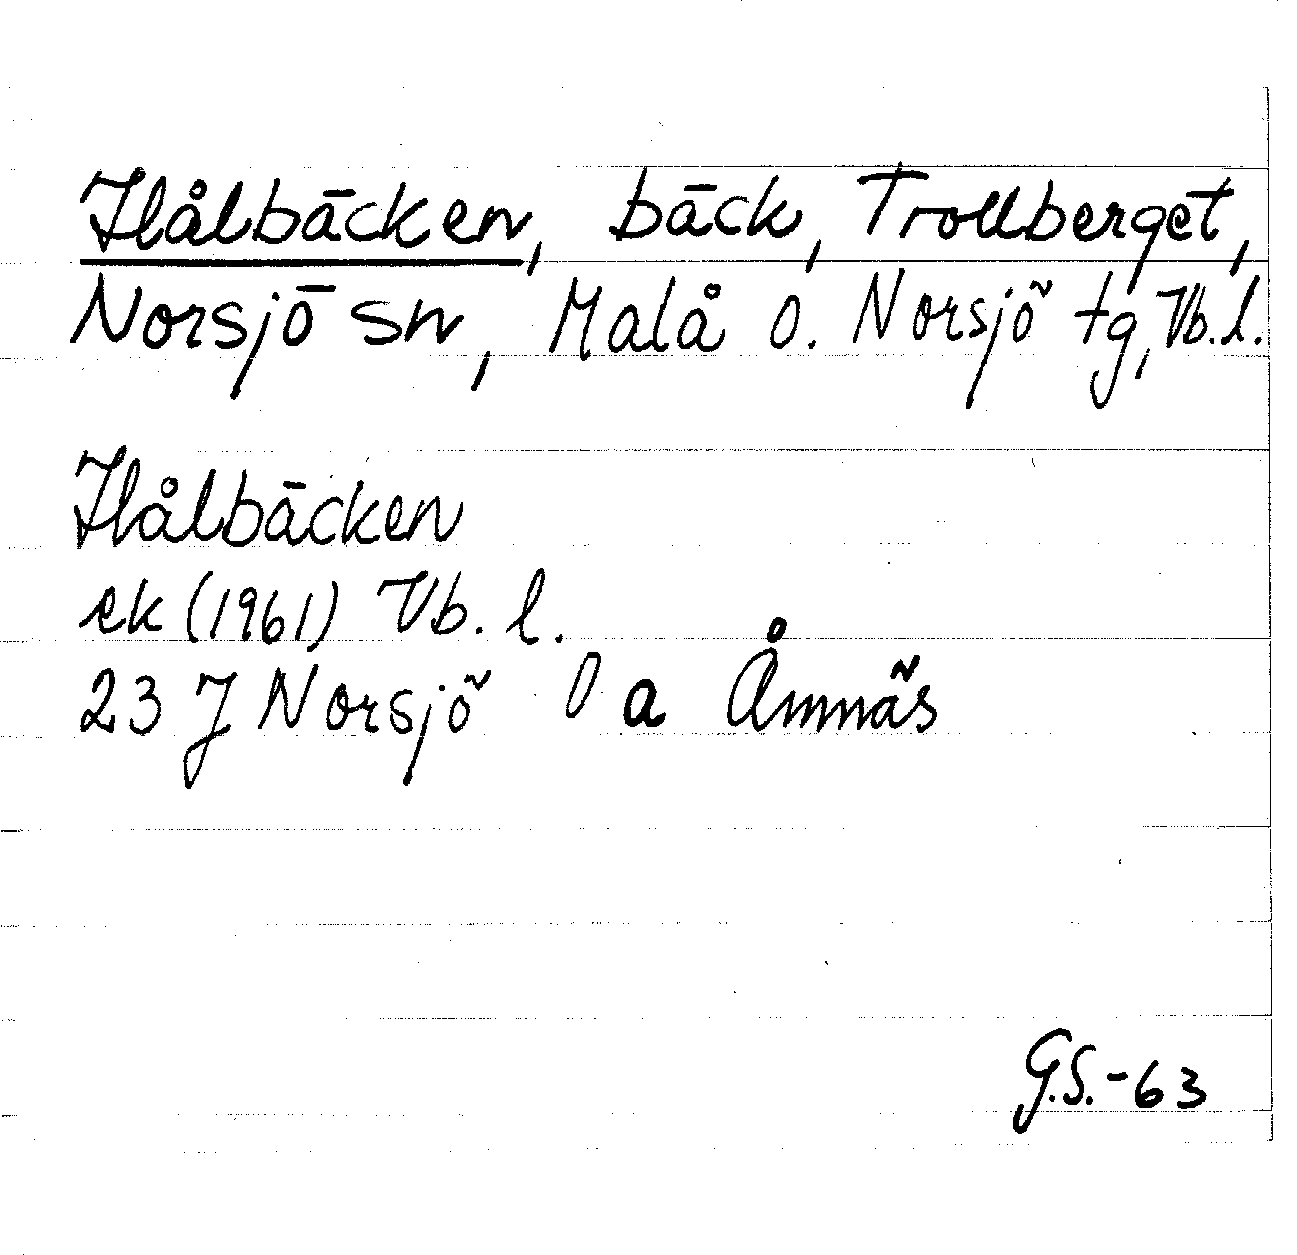 Hålbäcken, bäck, Trollberget,
Norsjö sn, Malå o. Norsjö tg, Vb. l.
Hålbäcken
ek (1961) Vb. l.
23 J Norsjö 0 a Åmnäs
G.S.-63